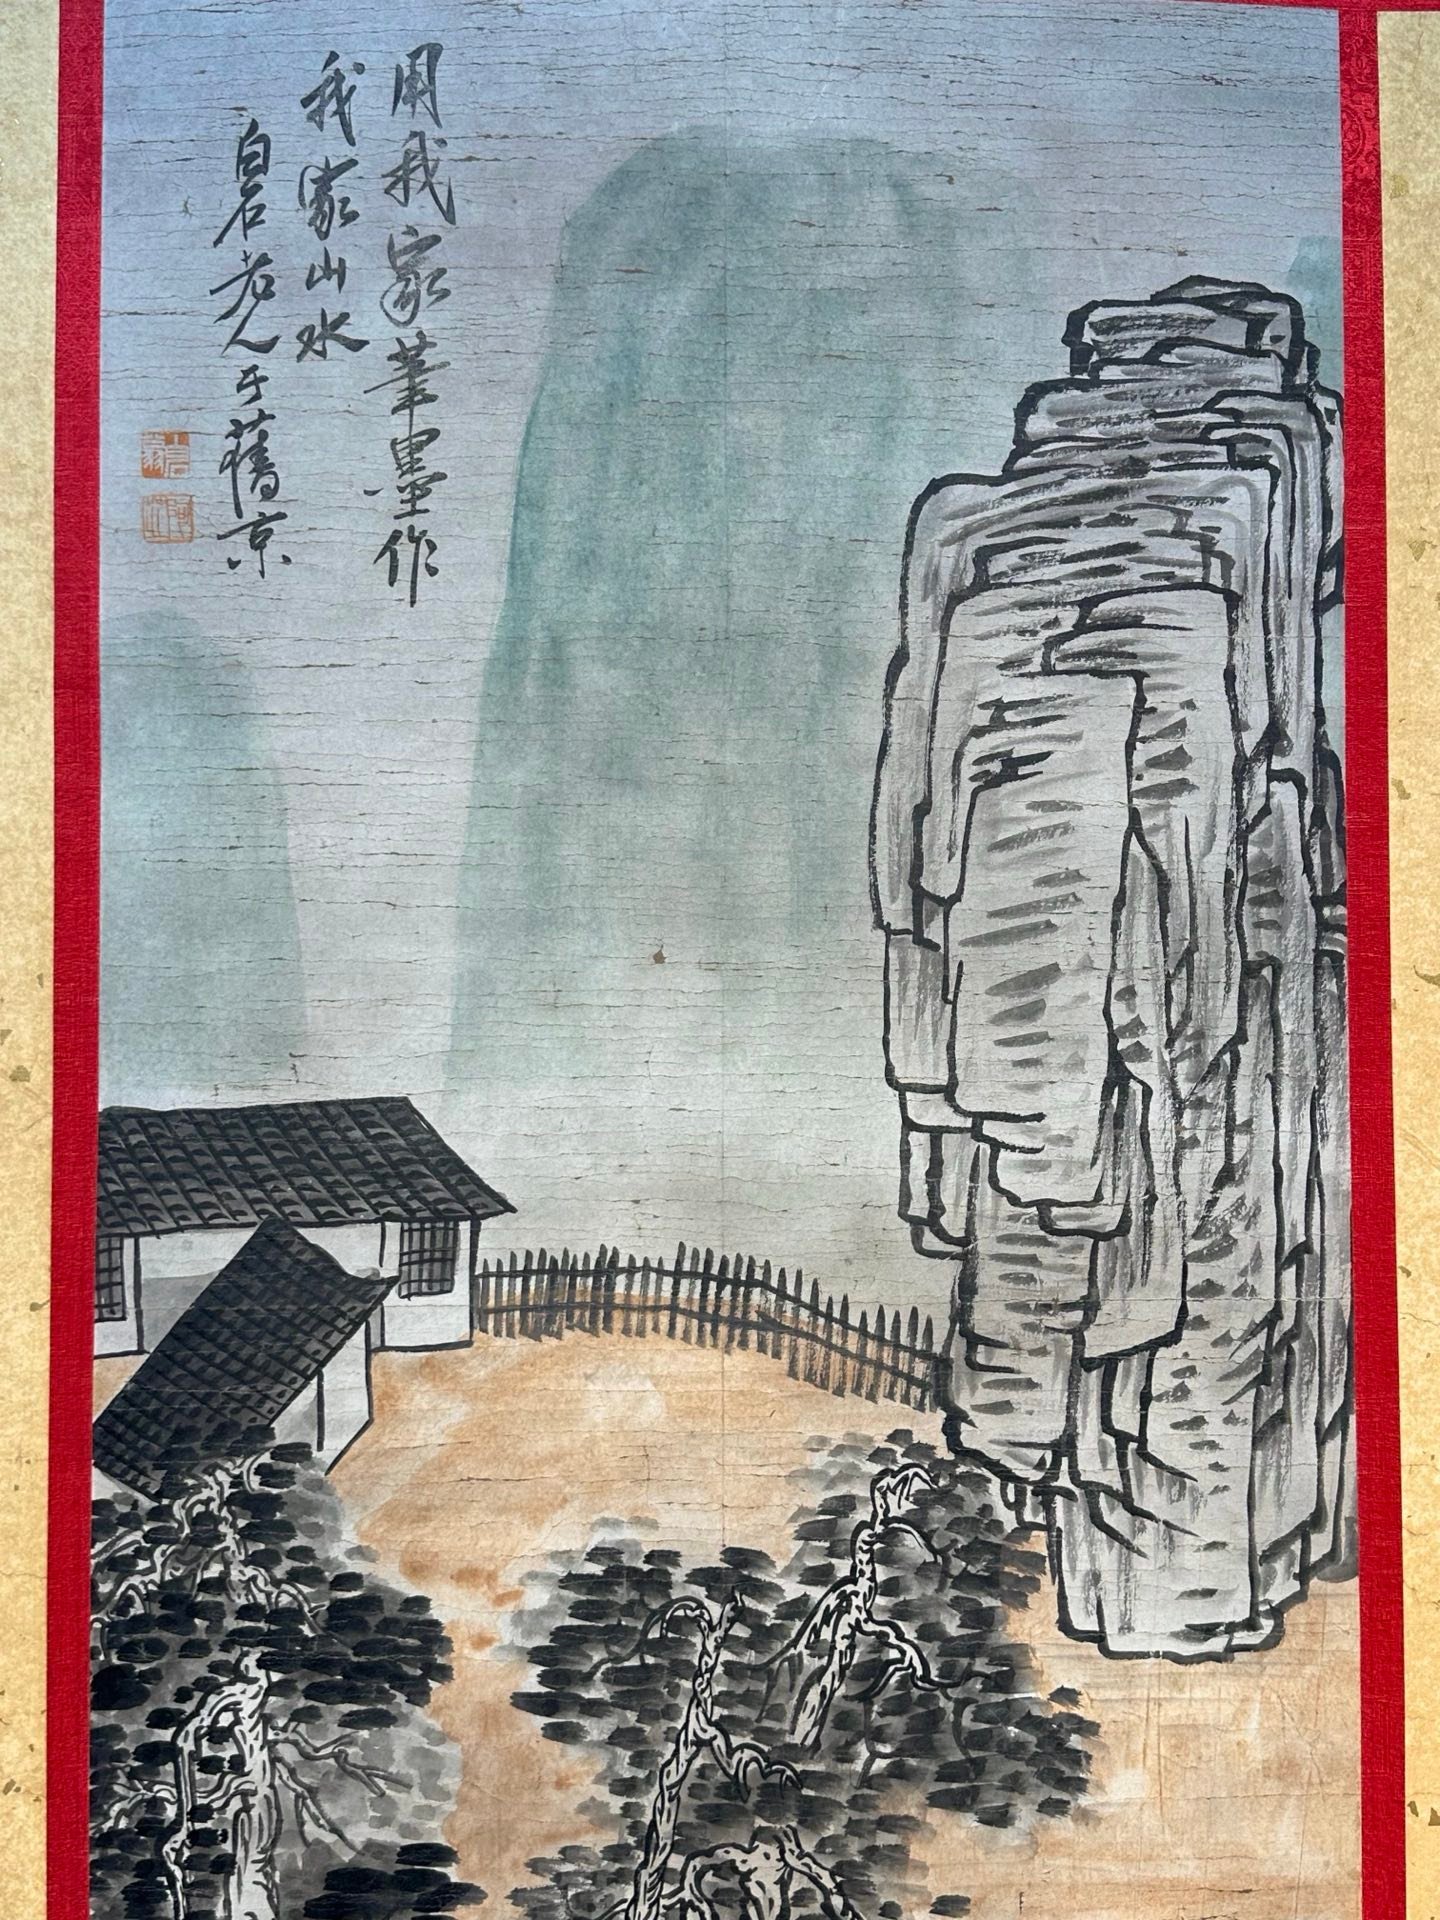 用我家筆墨作
我家山水
白石老人于舊京